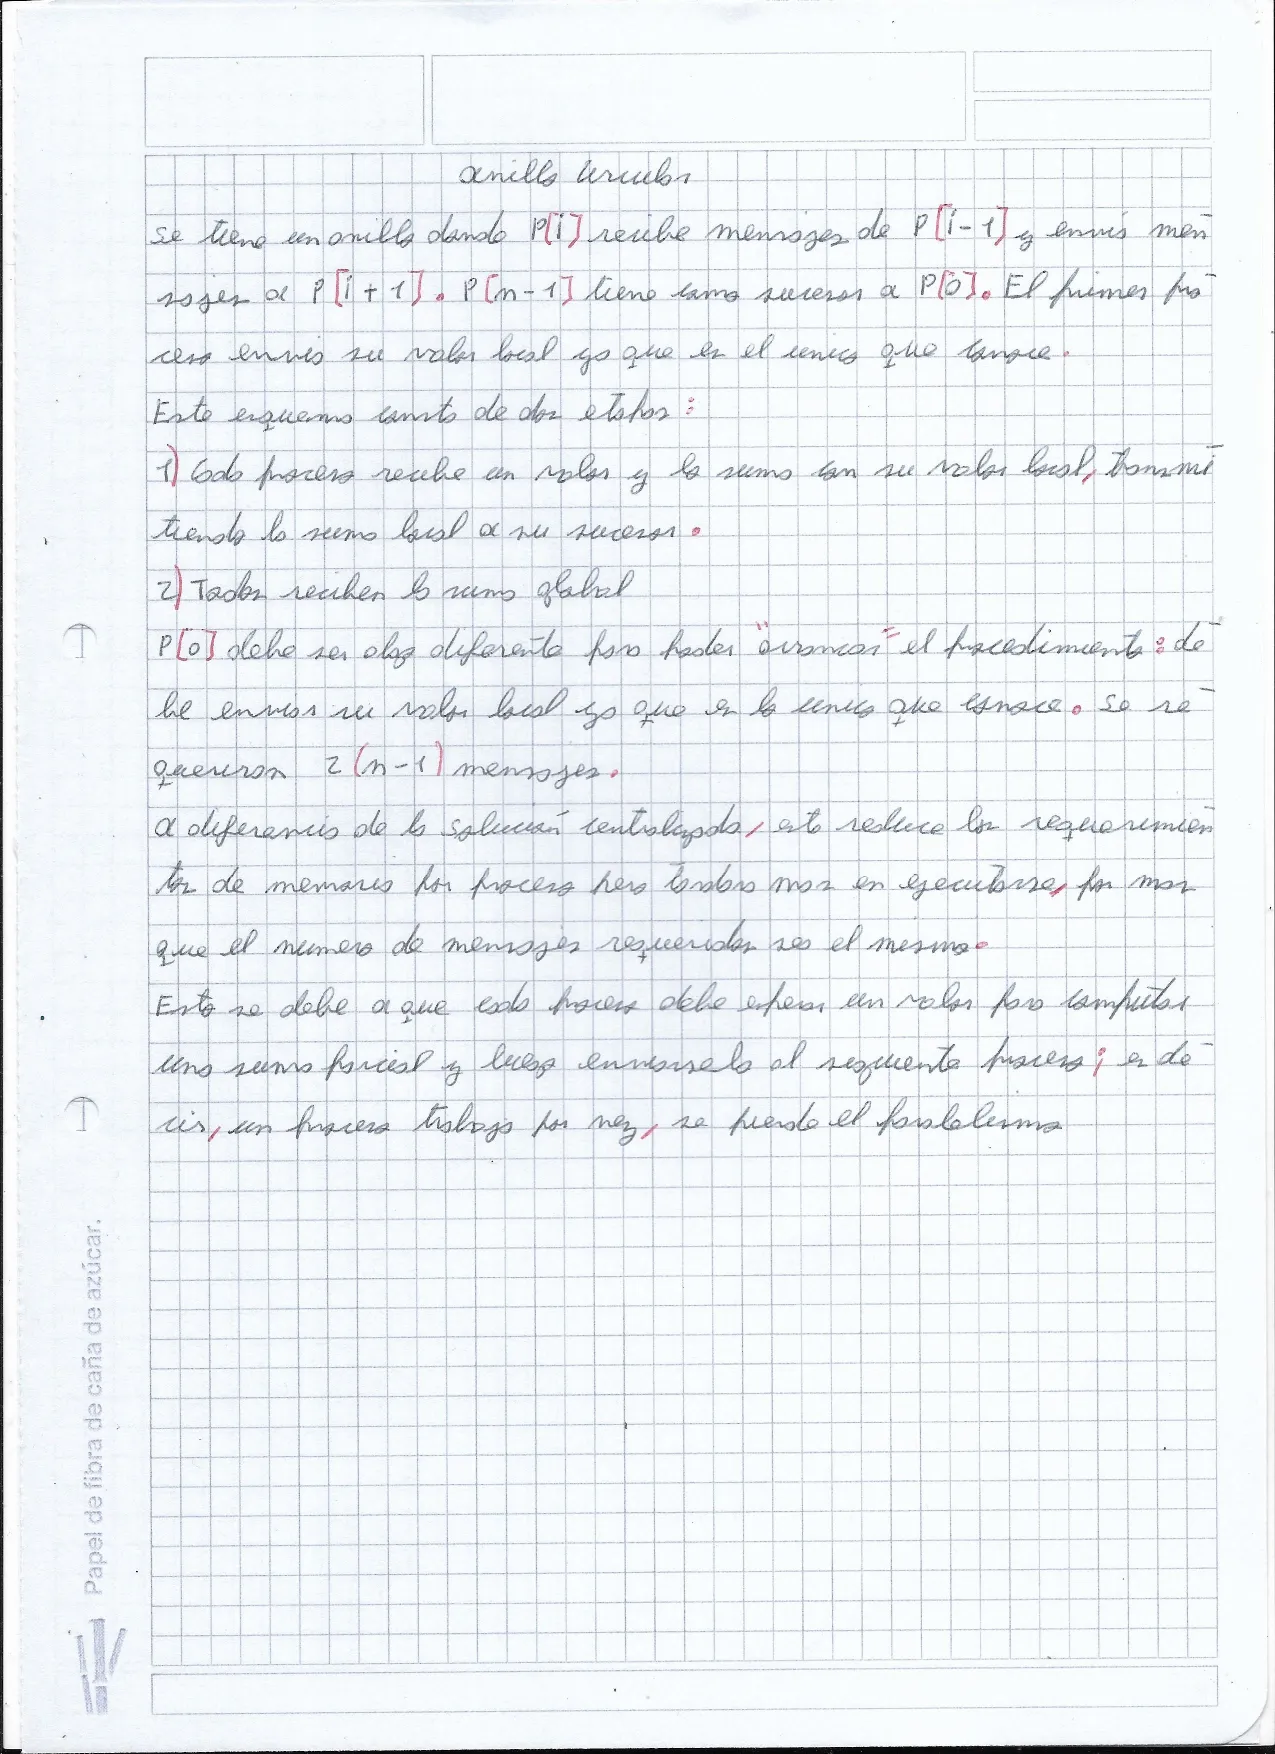 anillo circular
se tiene un anillo donde P[i] recibe mensajes de P[i-1] y envia men-
sajes a P[i+1]. P[n-1] tiene como sucesor a P[0]. El primer pro-
ceso envia su valor local ya que es el unico que conoce.
Este esquema consta de dos etapas:
1) Cada proceso recibe un valor y lo suma con su valor local, transmi-
tiendo la suma local a su sucesor.
2) Todos reciben la suma global
P[0] debe ser algo diferente para poder "arrancar" el procedimiento: de-
be enviar su valor local ya que es lo unico que conoce. Se re-
quieren 2(n-1) mensajes.
a diferencia de la solución centralizada, esto reduce los requerimien-
tos de memoria por proceso pero tardara mas en ejecutarse, por mas
que el numero de mensajes requeridos sea el mismo.
Esto se debe a que cada proceso debe esperar un valor para computar
una suma parcial y luego enviarsela al siguiente proceso; es de-
cir, un proceso trabaja por vez, se pierde el paralelismo
Papel de fibra de caña de azúcar.